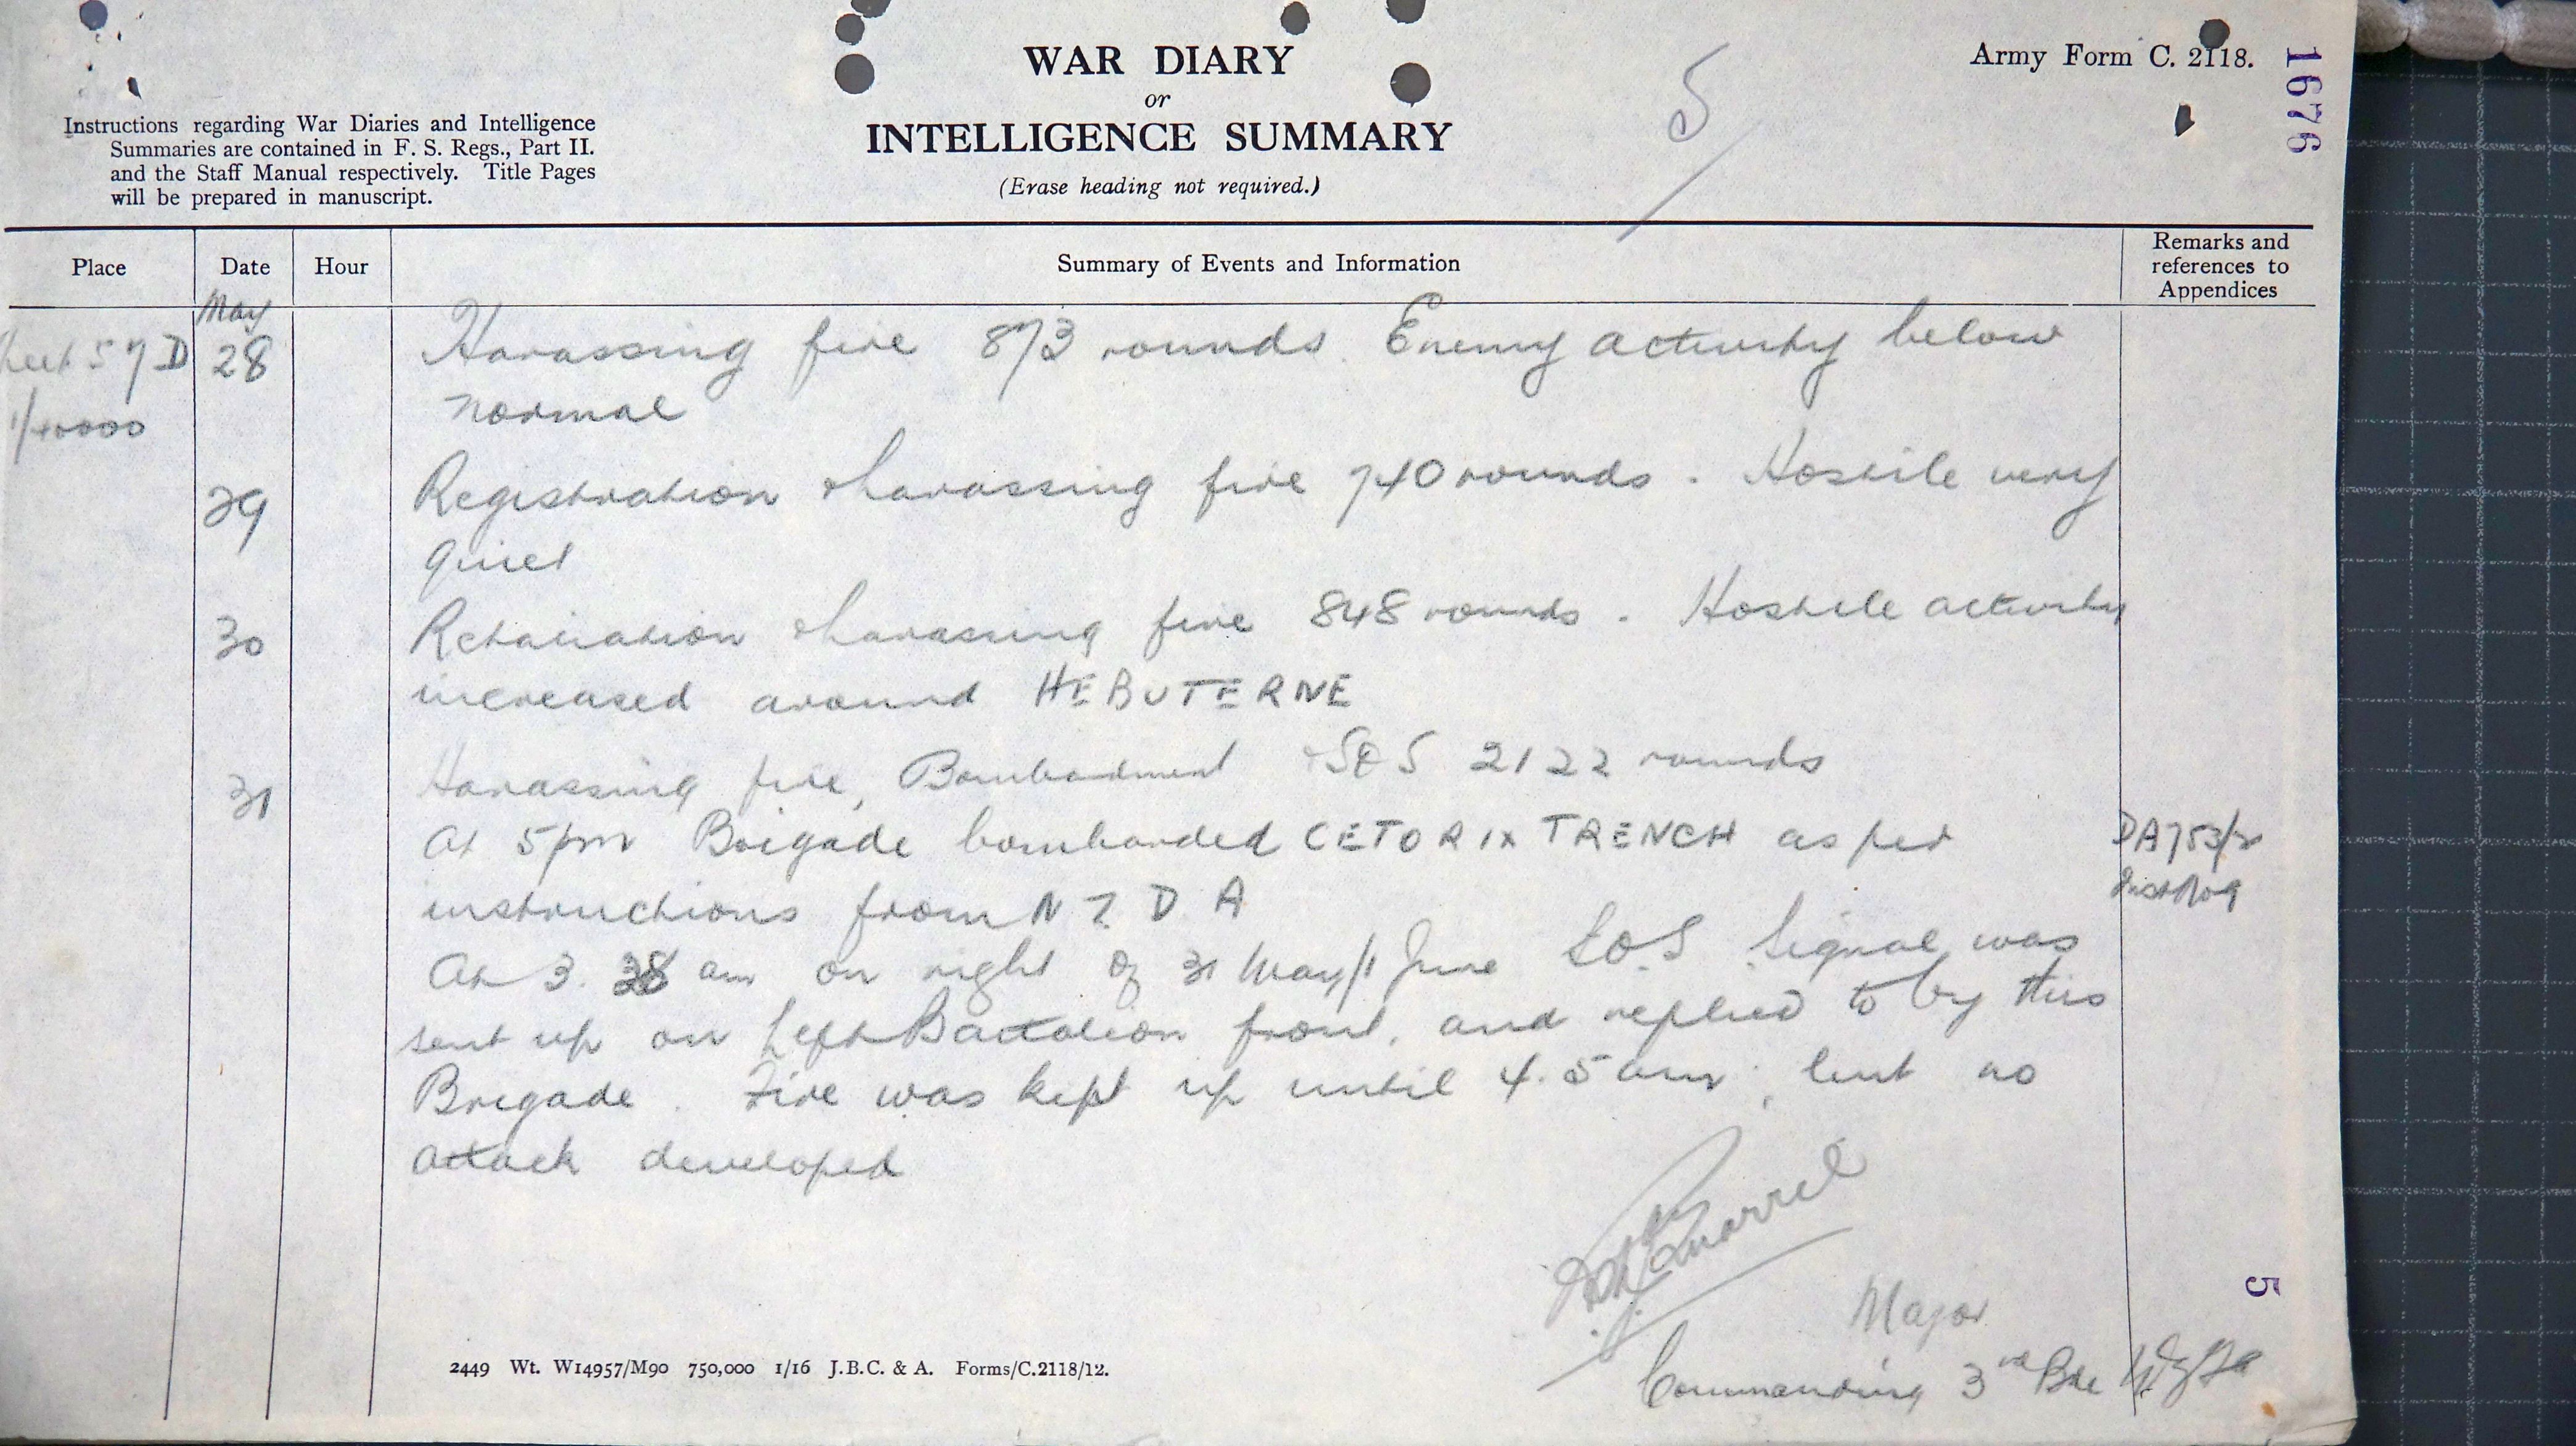 WAR DIARY
or
INTELLIGENCE SUMMARY
(Erase heading not required.)
Army Form C. 2118.
1676
5
Instructions regarding War Diaries and Intelligence
Summaries are contained in F. S. Regs., Part II.
and the Staff Manual respectively. Title Pages
will be prepared in manuscript.
Place Date Hour Summary of Events and Information Remarks and
references to
Appendices
May
heet 57D 28 Harassing fire 873 rounds. Enemy activity below
1/40000 normal
29 Registration & harassing fire 740 rounds. Hostile very
quiet
30 Retaliation & harassing fire 848 rounds. Hostile activity
increased around HEBUTERNE
31 Harassing fire, Bombardment & SOS 2122 rounds
At 5pm Brigade bombarded CETORIX TRENCH as per DA753/2
instructions from N Z D A
At 3. 38 am on night of 31 May/1 June S.O.S signal was
sent up on Left Battalion front, and replied to by this
Brigade. Fire was kept up until 4.5 am, but no
attack developed
Major
Commanding 3rd Bde
5
2449 Wt. W14957/M90 750,000 1/16 J.B.C. & A. Forms/C.2118/12.